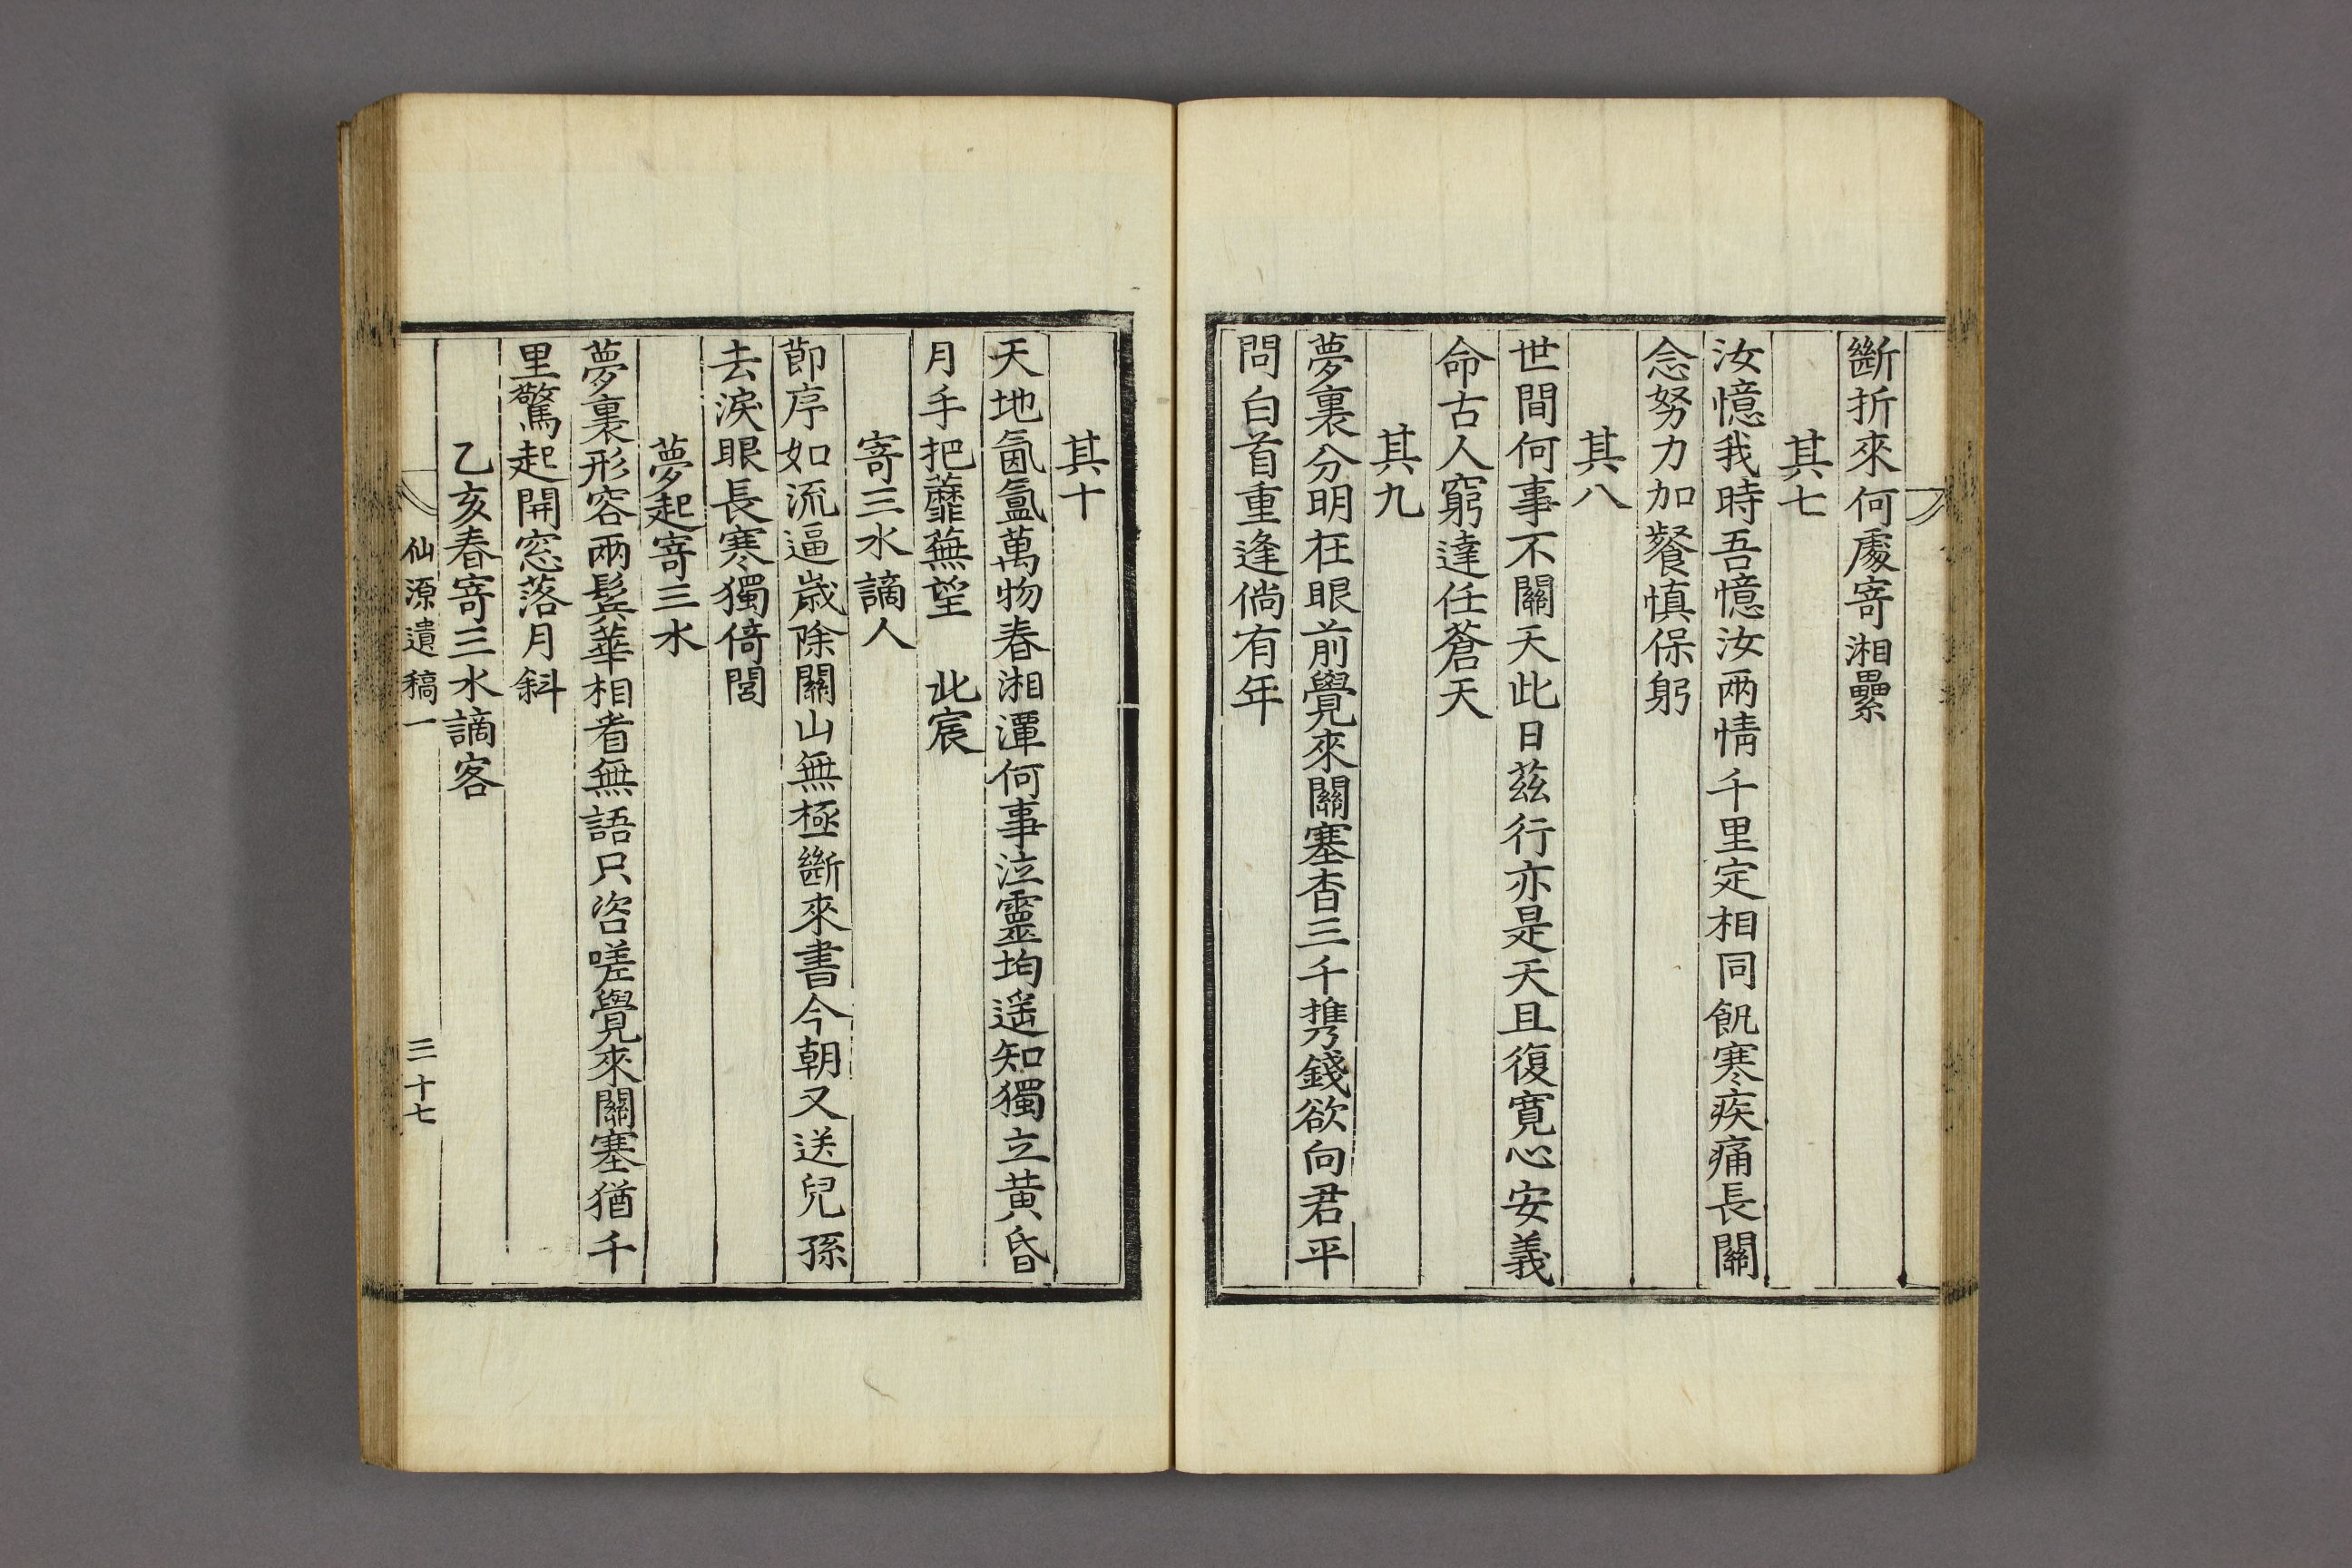 斷折來何處寄湘纍
其七
汝憶我時吾憶汝兩情千里定相同飢寒疾痛長關
念努力加餐愼保躬
其八
世間何事不關天此日茲行亦是天且復寬心安義
命古人窮達任蒼天
其九
夢裏分明在眼前覺來關塞杳三千攜錢欲向君平
問白首重逢倘有年
其十
天地氤氳萬物春湘潭何事泣靈均遥知獨立黃昏
月手把蘼蕪望 北宸
寄三水謫人
節序如流逼歲除關山無極斷來書今朝又送兒孫
去淚眼長寒獨倚閭
夢起寄三水
夢裏形容兩鬂華相看無語只咨嗟覺來關塞猶千
里驚起開窓落月斜
乙亥春寄三水謫客
仙源遺稿一 三十七